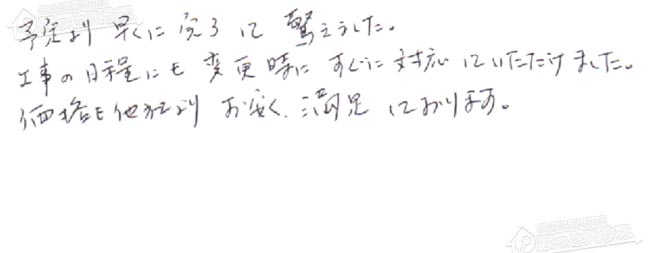 予定より早くに完了して驚きました。
工事の日程にも変更時にすぐに対応していただけました。
価格も他社よりお安く、満足しております。